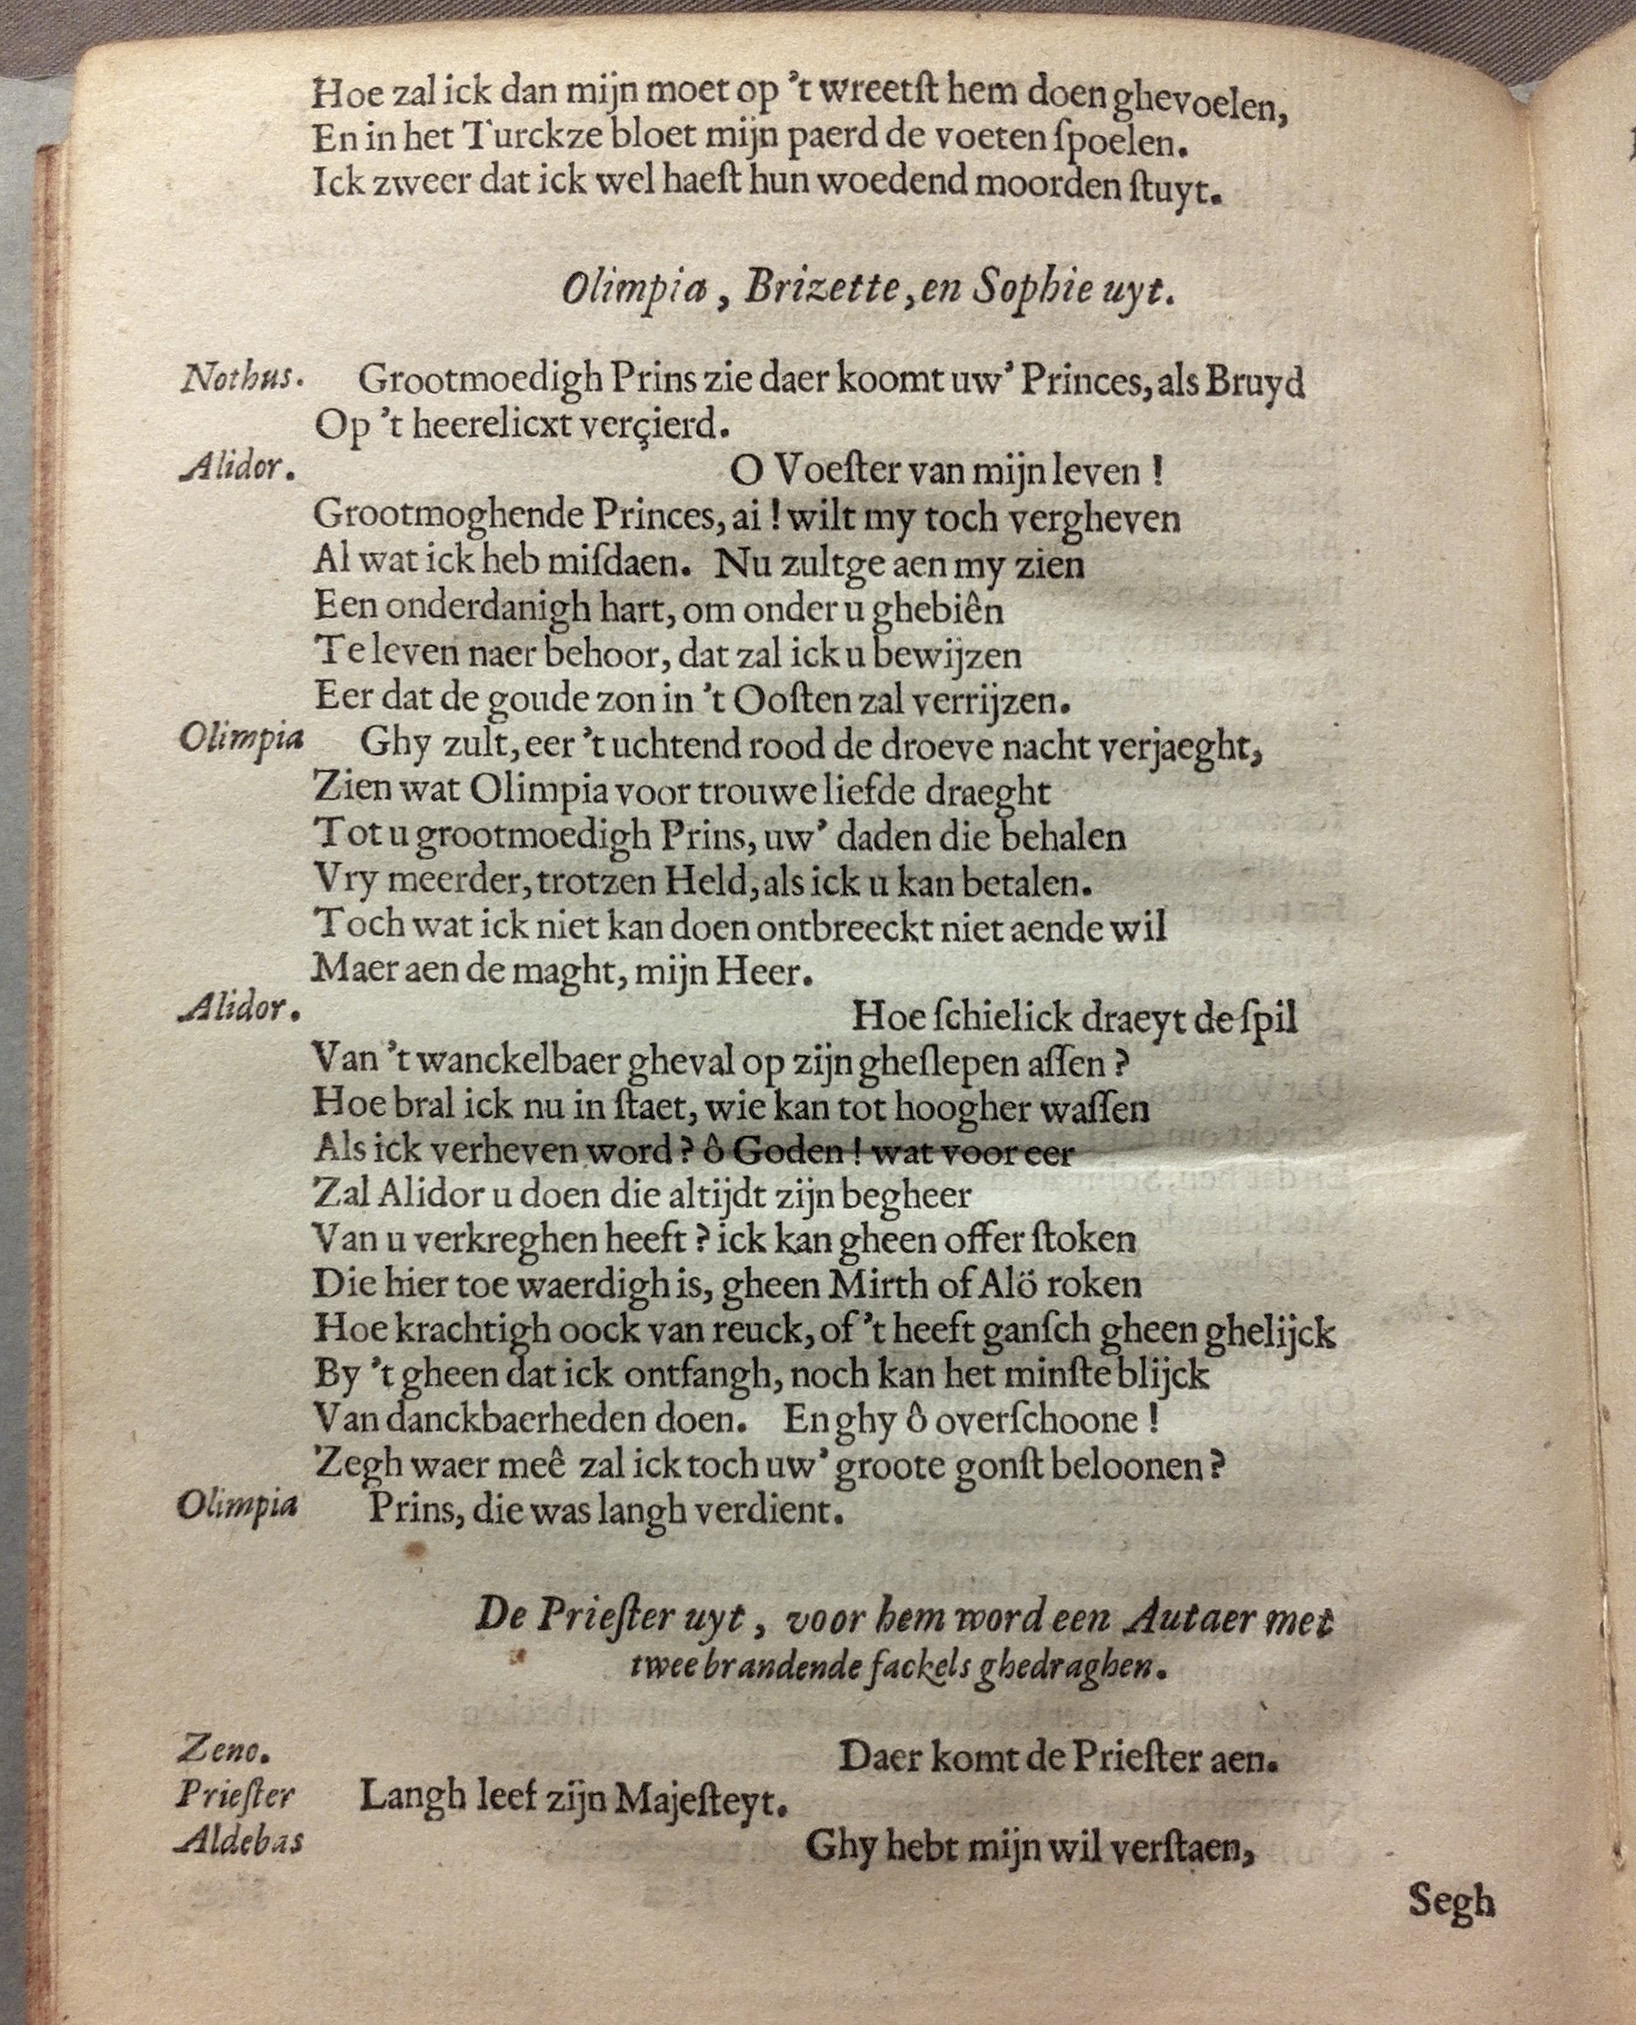 Hoe zal ick dan mijn moet op ’t wreetſt hem doen ghevoelen,
En in het Turckze bloet mijn paerd de voeten ſpoelen.
Ick zweer dat ick wel haeſt hun woedend moorden ſtuyt.
Olimpia, Brizette, en Sophie uyt.
Nothus. Grootmoedigh Prins zie daer koomt uw’ Princes, als Bruyd
Op ’t heerelicxt verçierd.
Alidor. O Voeſter van mijn leven !
Grootmoghende Princes, ai ! wilt my toch vergheven
Al wat ick heb miſdaen. Nu zultge aen my zien
Een onderdanigh hart, om onder u ghebiên
Te leven naer behoor, dat zal ick u bewijzen
Eer dat de goude zon in ’t Ooſten zal verrijzen.
Olimpia Ghy zult, eer ’t uchtend rood de droeve nacht verjaeght,
Zien wat Olimpia voor trouwe liefde draeght
Tot u grootmoedigh Prins, uw’ daden die behalen
Vry meerder, trotzen Held, als ick u kan betalen.
Toch wat ick niet kan doen ontbreeckt niet aende wil
Maer aen de maght, mijn Heer.
Alidor. Hoe ſchielick draeyt de ſpil
Van ’t wanckelbaer gheval op zijn gheſlepen aſſen ?
Hoe bral ick nu in ſtaet, wie kan tot hoogher waſſen
Als ick verheven word ? ô Goden ! wat voor eer
Zal Alidor u doen die altijdt zijn begheer
Van u verkreghen heeft ? ick kan gheen offer ſtoken
Die hier toe waerdigh is, gheen Mirth of Alö roken
Hoe krachtigh oock van reuck, of ’t heeft ganſch gheen ghelijck
By ’t gheen dat ick ontfangh, noch kan het minſte blijck
Van danckbaerheden doen. En ghy ô overſchoone !
Zegh waer meê zal ick toch uw’ groote gonſt beloonen ?
Olimpia Prins, die was langh verdient.
De Prieſter uyt, voor hem word een Autaer met
twee brandende fackels ghedraghen.
Zeno. Daer komt de Prieſter aen.
Prieſter Langh leef zijn Majeſteyt.
Aldebas Ghy hebt mijn wil verſtaen,
Segh